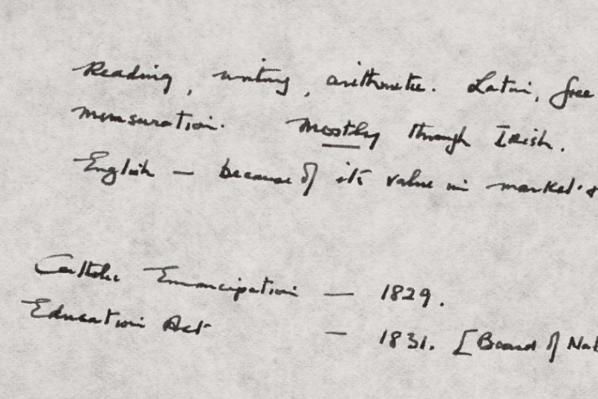 Reading, writing, arithmetic. Latin, free
mensuration. Mostly through Irish.
English — because of its value in market &
Catholic Emancipation — 1829.
Education Act — 1831. [Board of Nat